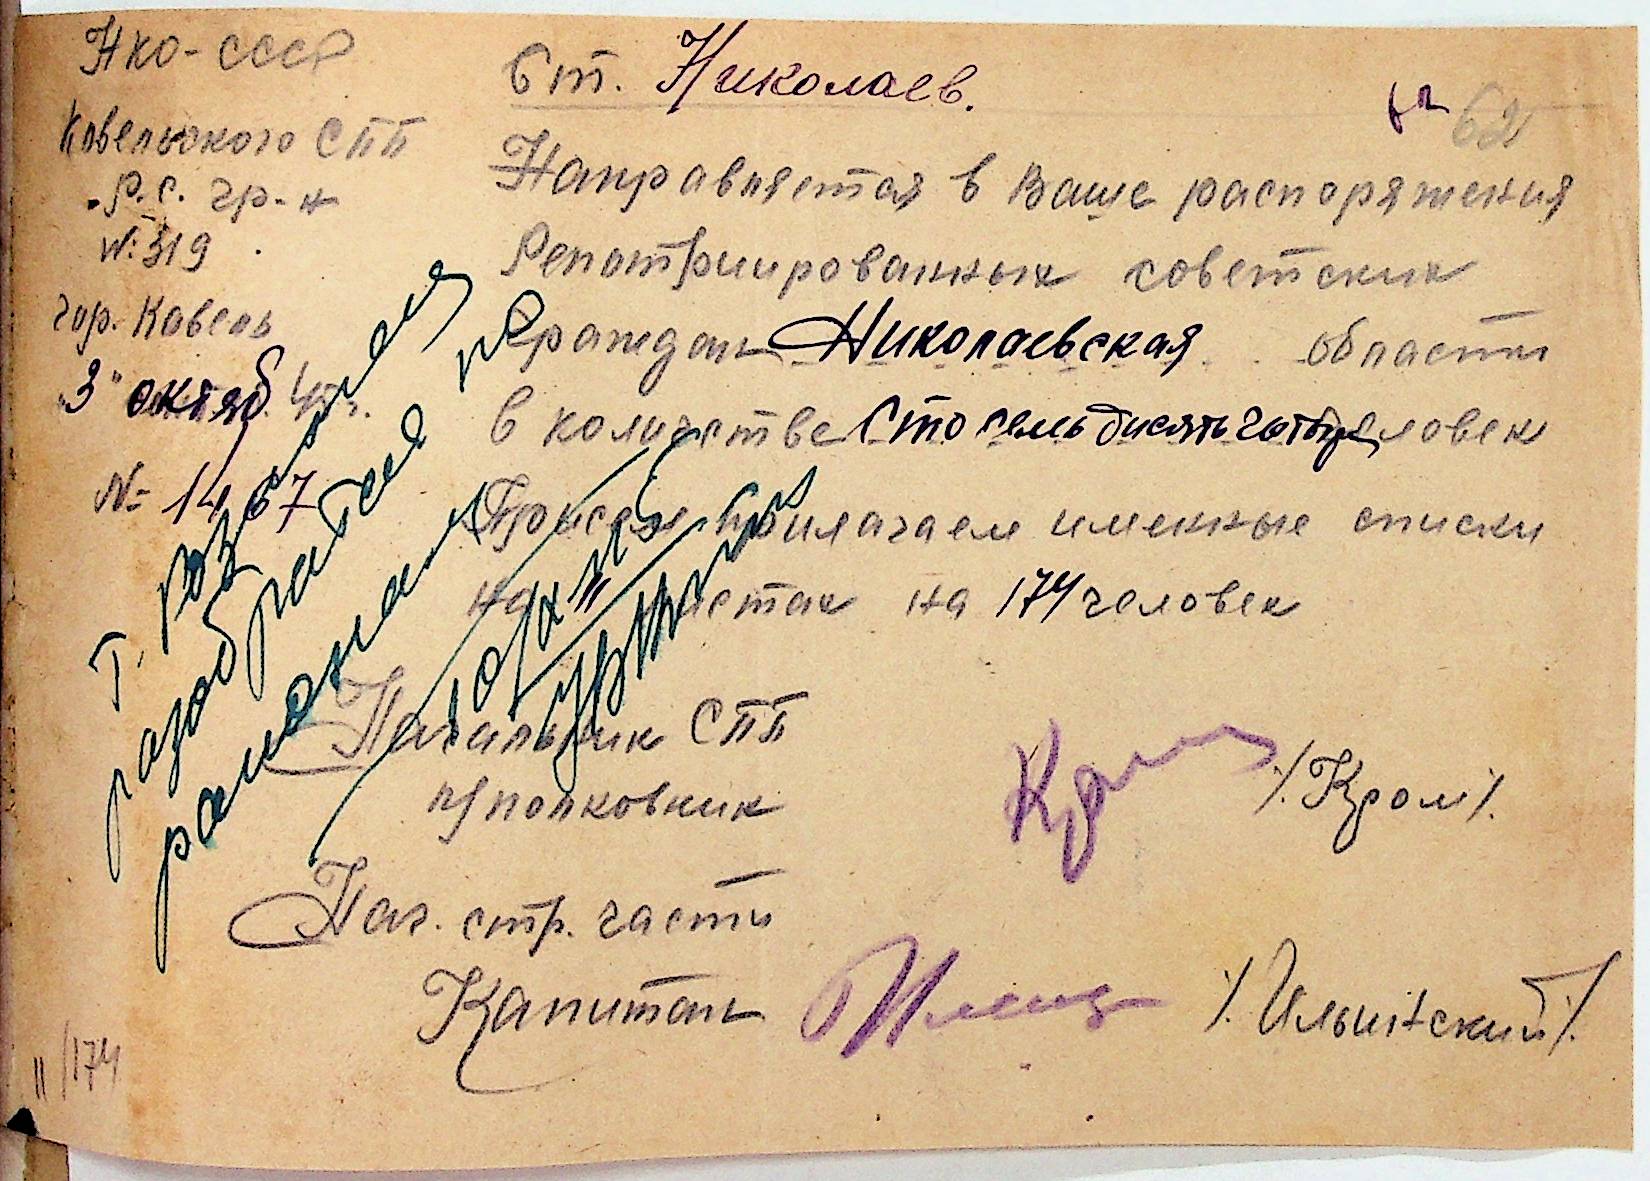 НКО-СССР
Ковельского СПП
Р.С. гр-н
№ 319
гор. Ковель
"3" октяб 45 г.
№ 1467
Ст. Николаев.
62
Направляется в Ваше распоряжения
Репотриированных советских
граждан Николаевская области
в количестве Сто семьдисять четыре человек
При сем прилагаем именные списки
на 11 листах на 174 человек
Начальник СПП
п/полковник /Кром/.
Нач. стр. части
Капитан /Ильинский/.
Т.
разобраться по
районам
11/174